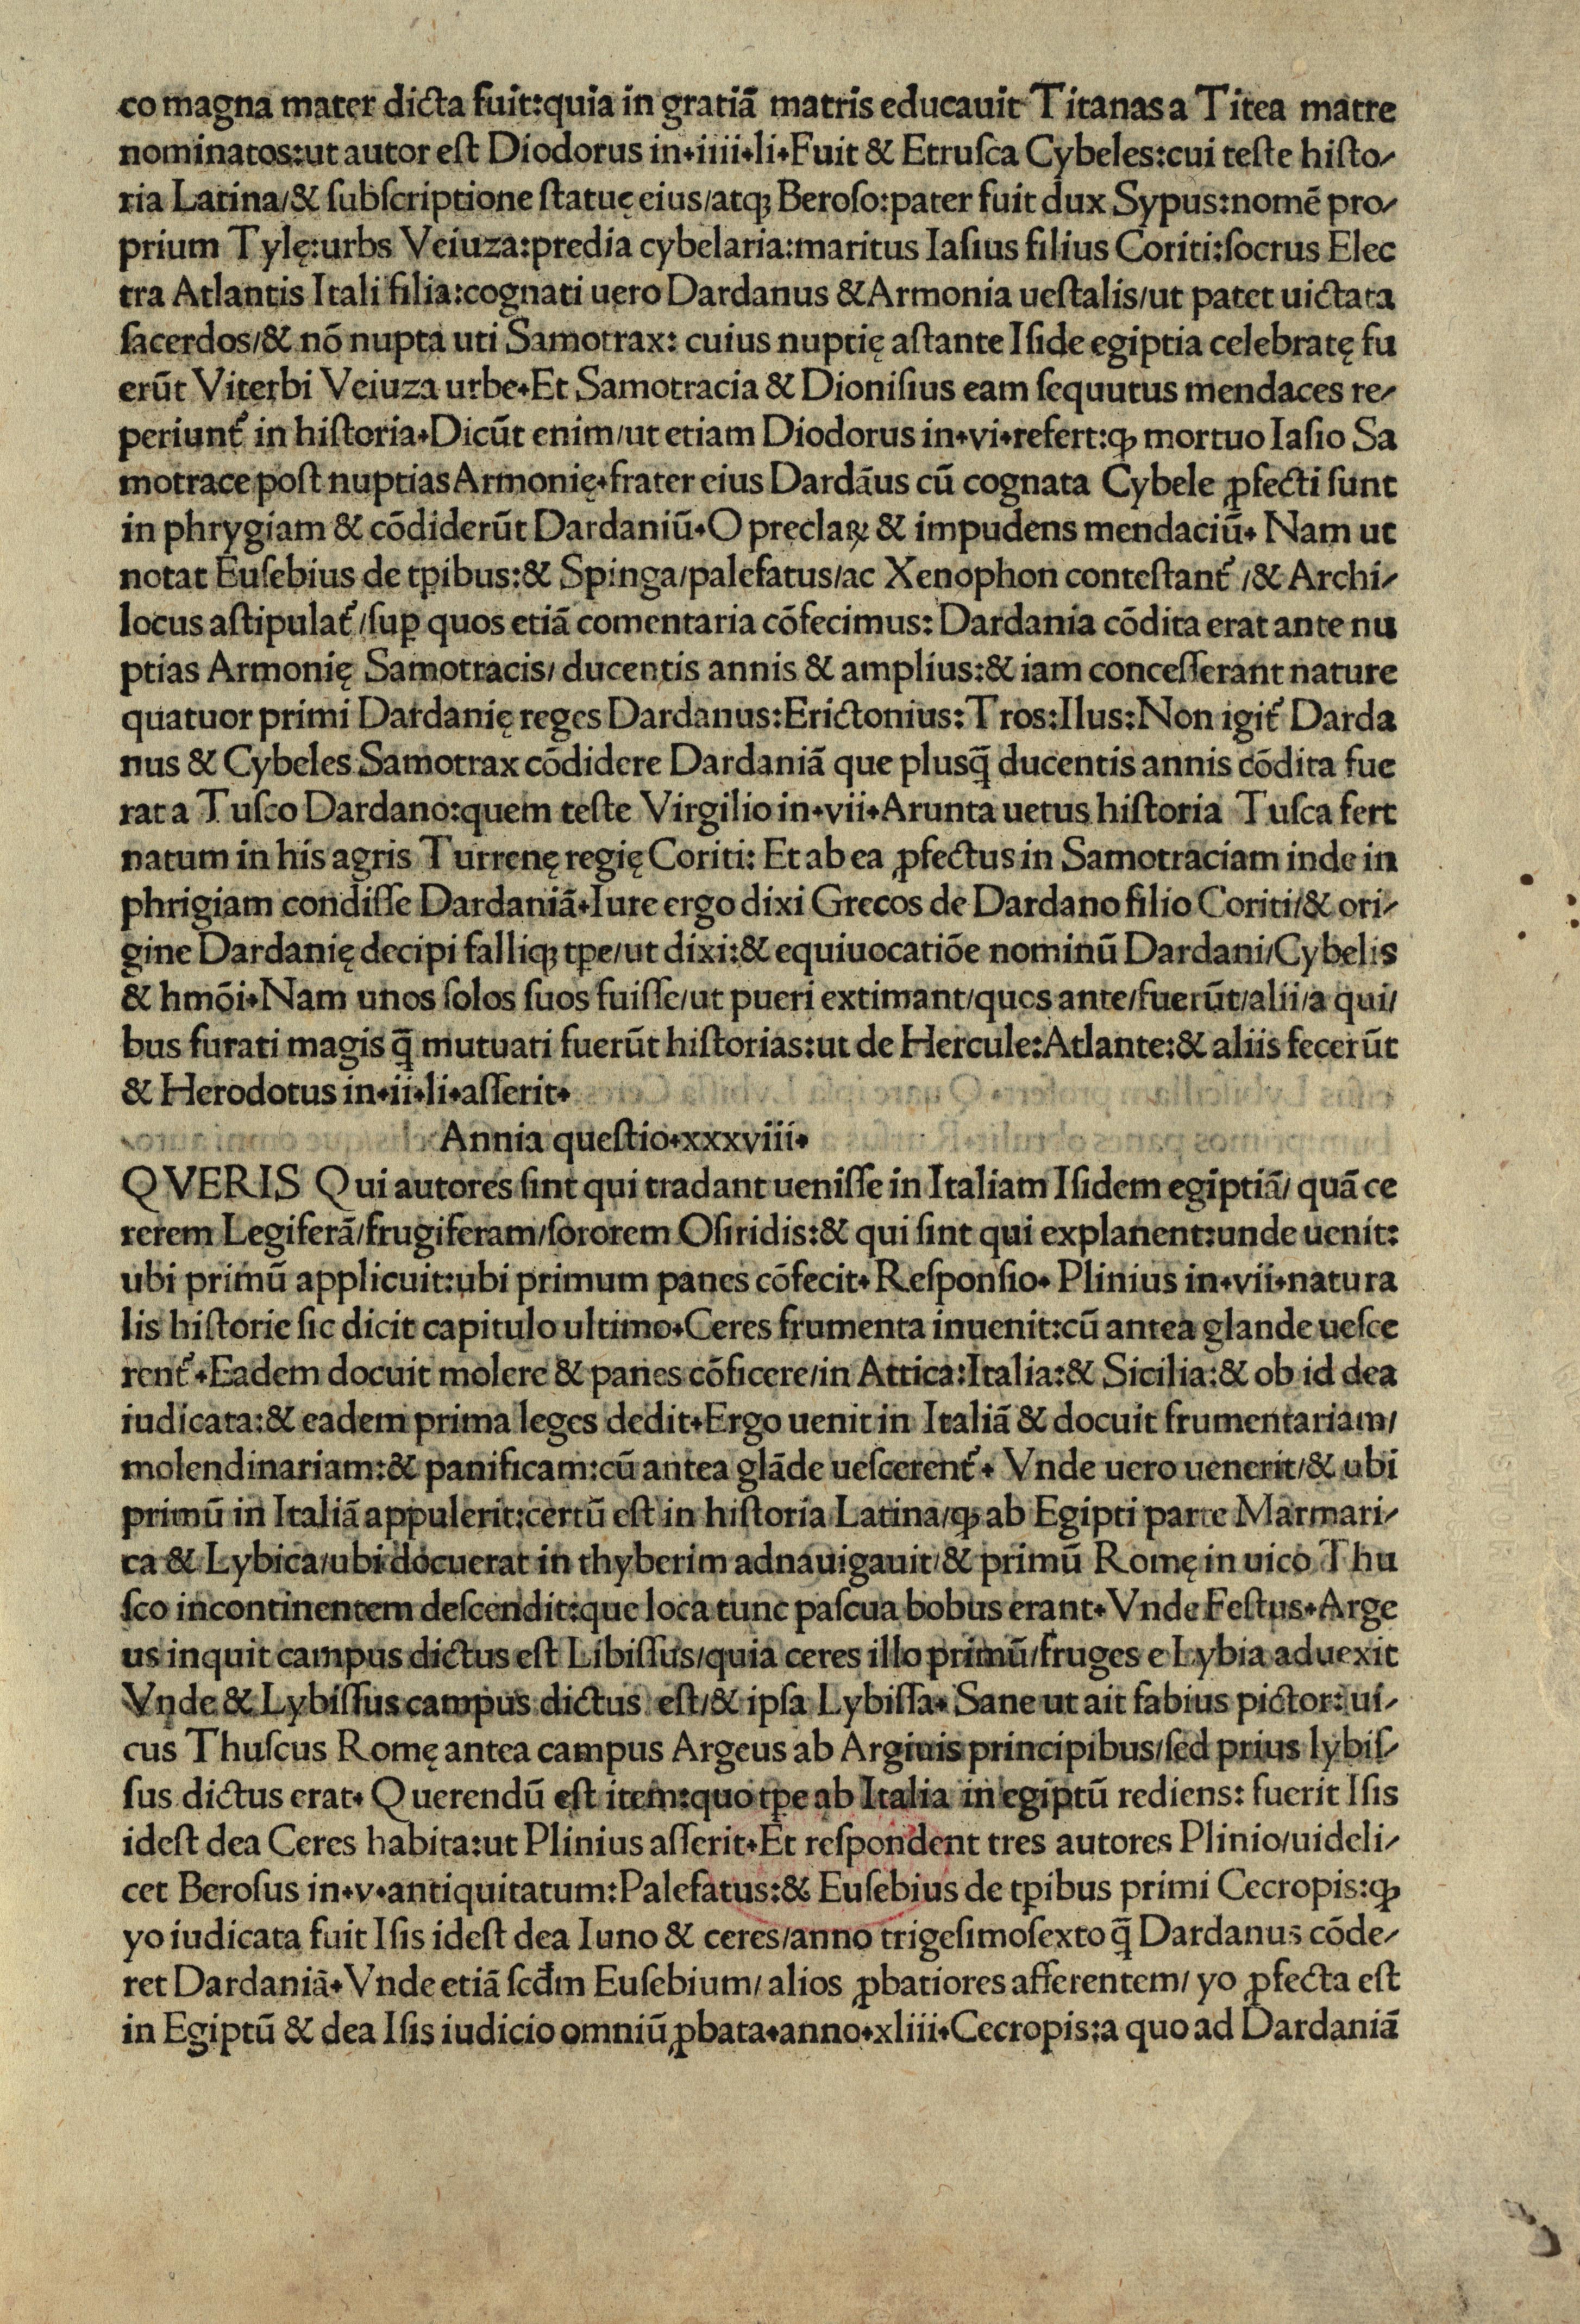 co magna mater dicta fuit:quia in gratiā matris educauit Titanas a Titea matre
nominatos:ut autor eſt Diodorus in.iiii.li.Fuit & Etruſca Cybeles:cui teſte hiſto/
ria Latina/& ſubſcriptione ſtatuę eius/atqꝫ Beroſo:pater fuit dux Sypus:nomē pro/
prium Tylę:urbs Veiuza:predia cybelaria:maritus Iaſius filius Coriti:ſocrus Elec
tra Atlantis Itali filia:cognati uero Dardanus & Armonia ueſtalis/ut patet uictata
ſacerdos/& nō nupta uti Samotrax: cuius nuptię aſtante Iſide egiptia celebratę fu
erūt Viterbi Veiuza urbe.Et Samotracia & Dioniſius eam ſequutus mendaces re/
periunt᷑ in hiſtoria.Dicūt enim/ut etiam Diodorus in.vi.refert:ꝙ mortuo Iaſio Sa
motrace poſt nuptias Armonię.frater eius Dardāus cū cognata Cybele ꝓfecti ſunt
in phrygiam & cōdiderūt Dardaniū.O preclaꝝ & impudens mendaciū. Nam ut
notat Euſebius de tꝑibus:& Spinga/palefatus/ac Xenophon conteſtant᷑ /& Archi/
locus aſtipulat᷑ /ſuꝑ quos etiā comentaria cōfecimus: Dardania cōdita erat ante nu
ptias Armonię Samotracis/ ducentis annis & amplius:& iam conceſſerant nature
quatuor primi Dardanię reges Dardanus:Erictonius:Tros:Ilus:Non igit᷑ Darda
nus & Cybeles Samotrax cōdidere Dardaniā que plusq̄ ducentis annis cōdita fue
rat a Tuſco Dardano:quem teſte Virgilio in.vii.Arunta uetus hiſtoria Tuſca fert
natum in his agris Turrenę regię Coriti: Et ab ea ꝓfectus in Samotraciam inde in
phrigiam condiſſe Dardaniā.Iure ergo dixi Grecos de Dardano filio Coriti/& ori/
gine Dardanię decipi falliqꝫ tꝑe/ut dixi:& equiuocatiōe nominū Dardani/Cybelis
& hmōi.Nam unos ſolos ſuos fuiſſe/ut pueri extimant/quos ante/fuerūt/alii/a qui/
bus furati magis q̄ mutuati fuerūt hiſtorias:ut de Hercule:Atlante:& aliis fecerūt
& Herodotus in.ii.li.aſſerit.
Annia queſtio.xxxviii.
QVERIS Qui autores ſint qui tradant ueniſſe in Italiam Iſidem egiptiā/ quā ce
rerem Legiferā/frugiferam/ſororem Oſiridis:& qui ſint qui explanent:unde uenit:
ubi primū applicuit:ubi primum panes cōfecit. Reſponſio. Plinius in.vii.natura
lis hiſtorie ſic dicit capitulo ultimo.Ceres frumenta inuenit:cū antea glande ueſce
rent᷑ .Eadem docuit molere & panes cōficere/in Attica:Italia:& Sicilia:& ob id dea
iudicata:& eadem prima leges dedit.Ergo uenit in Italiā & docuit frumentariam/
molendinariam:& panificam:cū antea glāde ueſcerent᷑ . Vnde uero uenerit/& ubi
primū in Italiā appulerit:certū eſt in hiſtoria Latina/ꝙ ab Egipti parte Marmari/
ca & Lybica/ubi docuerat in thyberim adnauigauit/& primū Romę in uico Thu
ſco incontinentem deſcendit:que loca tunc paſcua bobus erant.Vnde Feſtus.Arge
us inquit campus dictus eſt Libiſſus/quia ceres illo primū/fruges e Lybia aduexit
Vnde & Lybiſſus campus dictus eſt/& ipſa Lybiſſa. Sane ut ait fabius pictor: ui/
cus Thuſcus Romę antea campus Argeus ab Argiuis principibus/ſed prius lybiſ/
ſus dictus erat. Querendū eſt item:quo tꝑe ab Italia in egiptū rediens: fuerit Iſis
ideſt dea Ceres habita:ut Plinius aſſerit.Et reſpondent tres autores Plinio/uideli/
cet Beroſus in.v.antiquitatum:Palefatus:& Euſebius de tꝑibus primi Cecropis:ꝙ
yo iudicata fuit Iſis ideſt dea Iuno & ceres/anno trigeſimoſexto q̄ Dardanus cōde/
ret Dardaniā.Vnde etiā ſcđm Euſebium/ alios ꝓbatiores afferentem/ yo ꝓfecta eſt
in Egiptū & dea Iſis iudicio omniū ꝓbata.anno.xliii.Cecropis:a quo ad Dardaniā